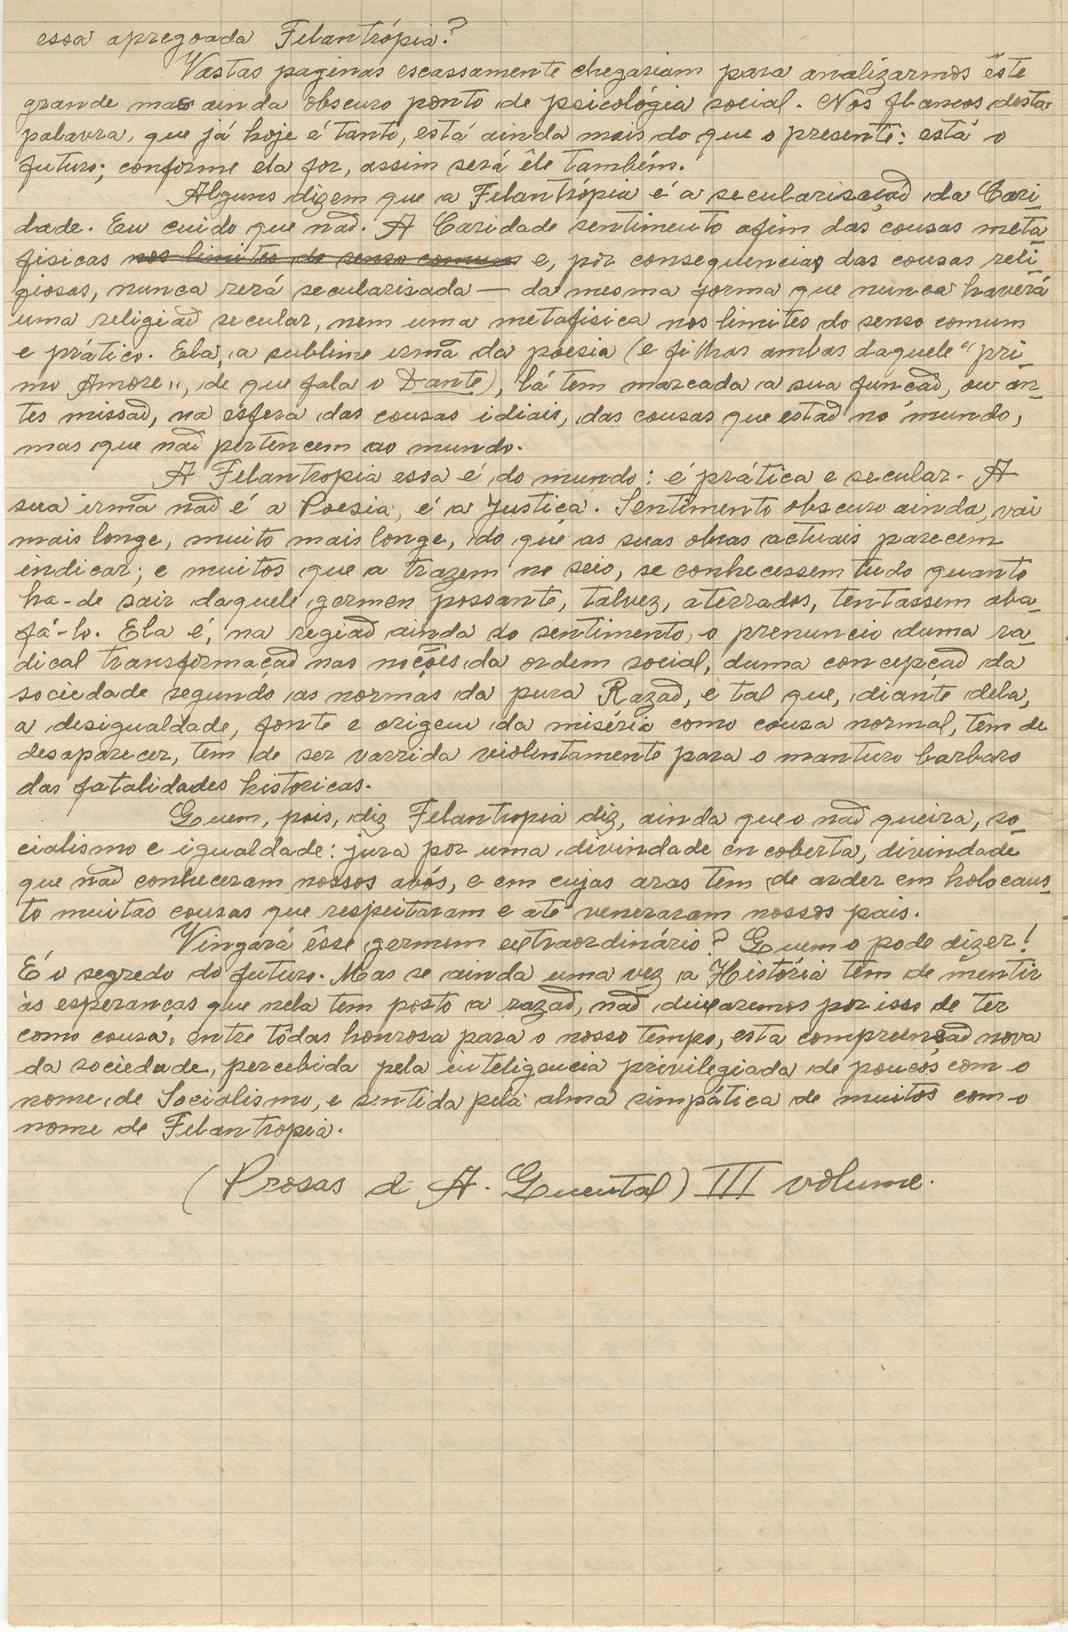 essa apregoada Filantrópia?
Vastas paginas escassamente chegariam para analizarmos êste
grande mas ainda obscuro ponto de psicológia social. Nos flancos desta
palavra, que já hoje é tanto, está ainda mais do que o presente: está o
futuro; conforme ela for, assim será êle também.
Alguns dizem que a Filantrópia é a secularisação da Cari-
dade. Eu cuido que não. A Caridade sentimento afim das cousas meta-
fisicas nos limites do senso comum e, por consequencias das cousas reli-
giosas, nunca será secularisada — da mesma forma que nunca haverá
uma religião secular, nem uma metafisica nos limites do senso comum
e prático. Ela, a sublime irmã da poesia (e filhas ambas daquele "pri-
mo Amore", de que fala o Dante), lá tem marcada a sua função, ou an-
tes missão, na esfera das cousas idiais, das cousas que estão no mundo,
mas que não pertencem ao mundo.
A Filantropia essa é do mundo: é prática e secular. A
sua irmã não é a Poesia, é a Justiça. Sentimento obscuro ainda, vai
mais longe, muito mais longe, do que as suas obras actuais parecem
indicar; e muitos que a trazem no seio, se conhecessem tudo quanto
ha-de sair daquele germen possante, talvez, aterrados, tentassem aba-
fá-lo. Ela é, na região ainda do sentimento, o prenuncio duma ra-
dical transformação nas noções da ordem social, duma concepção da
sociedade segundo as normas da pura Razão, e tal que, diante dela,
a desigualdade, fonte e origem da miséria como cousa normal, tem de
desaparecer, tem de ser varrida violentamente para o monturo barbaro
das fatalidades historicas.
Quem, pois, diz Filantropia diz, ainda que o não queira, so-
cialismo e igualdade: jura por uma divindade encoberta, divindade
que não conheceram nossos avós, e em cujas aras tem de arder em holocaus-
to muitas cousas que respeitaram e até veneraram nossos pais.
Vingará êsse germem extraordinário? Quem o pode dizer!
É o segredo do futuro. Mas se ainda uma vez a História tem de mentir
às esperanças que nela tem posto a razão, não deixaremos por isso de ter
como cousa, entre tôdas honrosa para o nosso tempo, esta compreensão nova
da sociedade, percebida pela inteligencia privilegiada de poucos com o
nome de Socialismo, e sentida pela alma simpática de muitos com o
nome de Filantropia.
(Prosas de A. Quental) III volume.